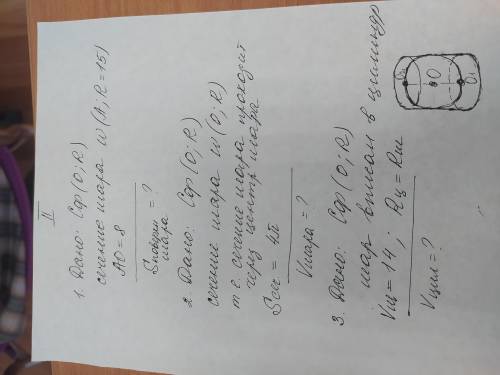 II
1. Дано: Сф(O; R)
сечение шара w(A; R=15)
AO = 8
Sповерхн шара = ?
2. Дано: Сф(O; R)
сечение шара w(O; R)
т.е. сечение шара проходит
через центр шара
Sсеч = 4π
Vшара = ?
3. Дано: Сф(O; R)
шар вписан в цилиндр
Vш = 14; Rц = Rш
Vцил = ?
O
O₁